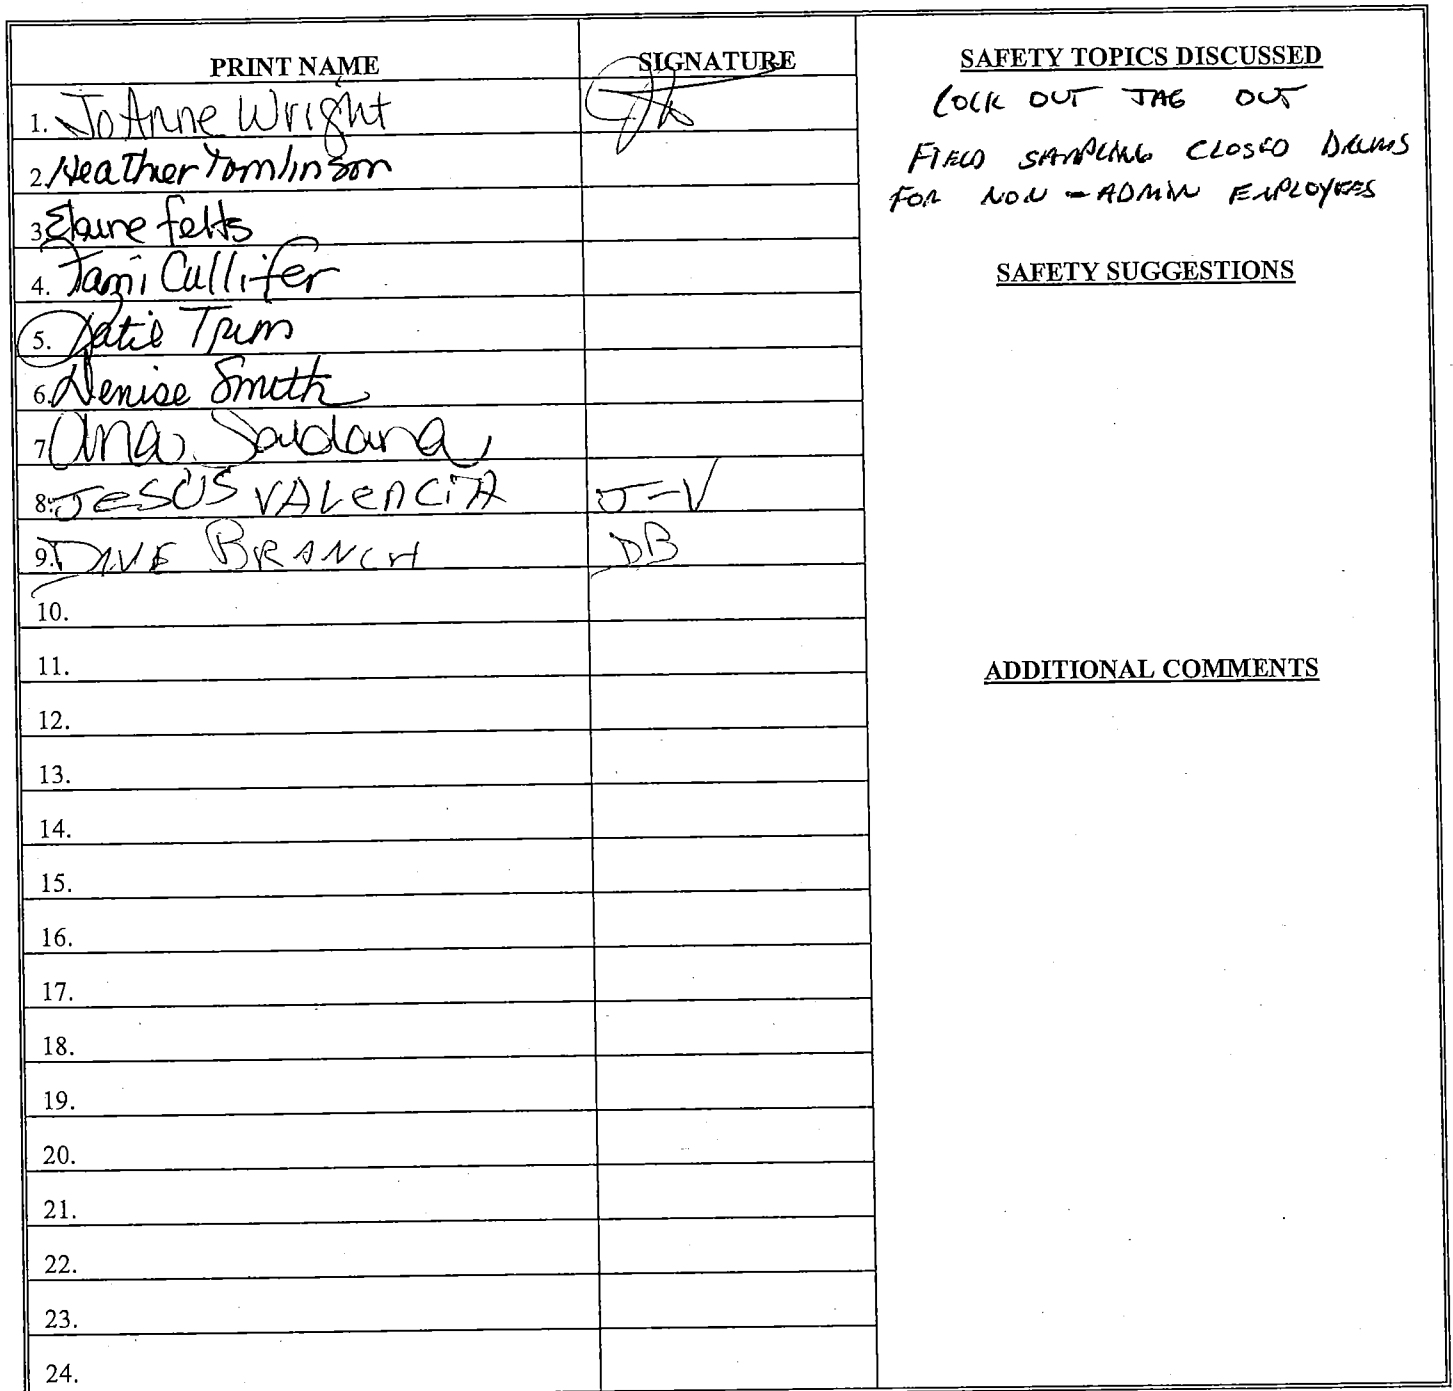 PRINT NAME SIGNATURE
1. JoAnne Wright
2. Heather Tomlinson
3. Elaine Felts
4. Tami Cullifer
5. Katie Trim
6. Denise Smith
7. Ana Saldana
8. JESUS VALENCIA J-V
9. DAVE BRANCH DB
10.
11.
12.
13.
14.
15.
16.
17.
18.
19.
20.
21.
22.
23.
24.
SAFETY TOPICS DISCUSSED
LOCK OUT TAG OUT
FIELD SAMPLING CLOSED DRUMS
FOR NON-ADMIN EMPLOYEES
SAFETY SUGGESTIONS
ADDITIONAL COMMENTS